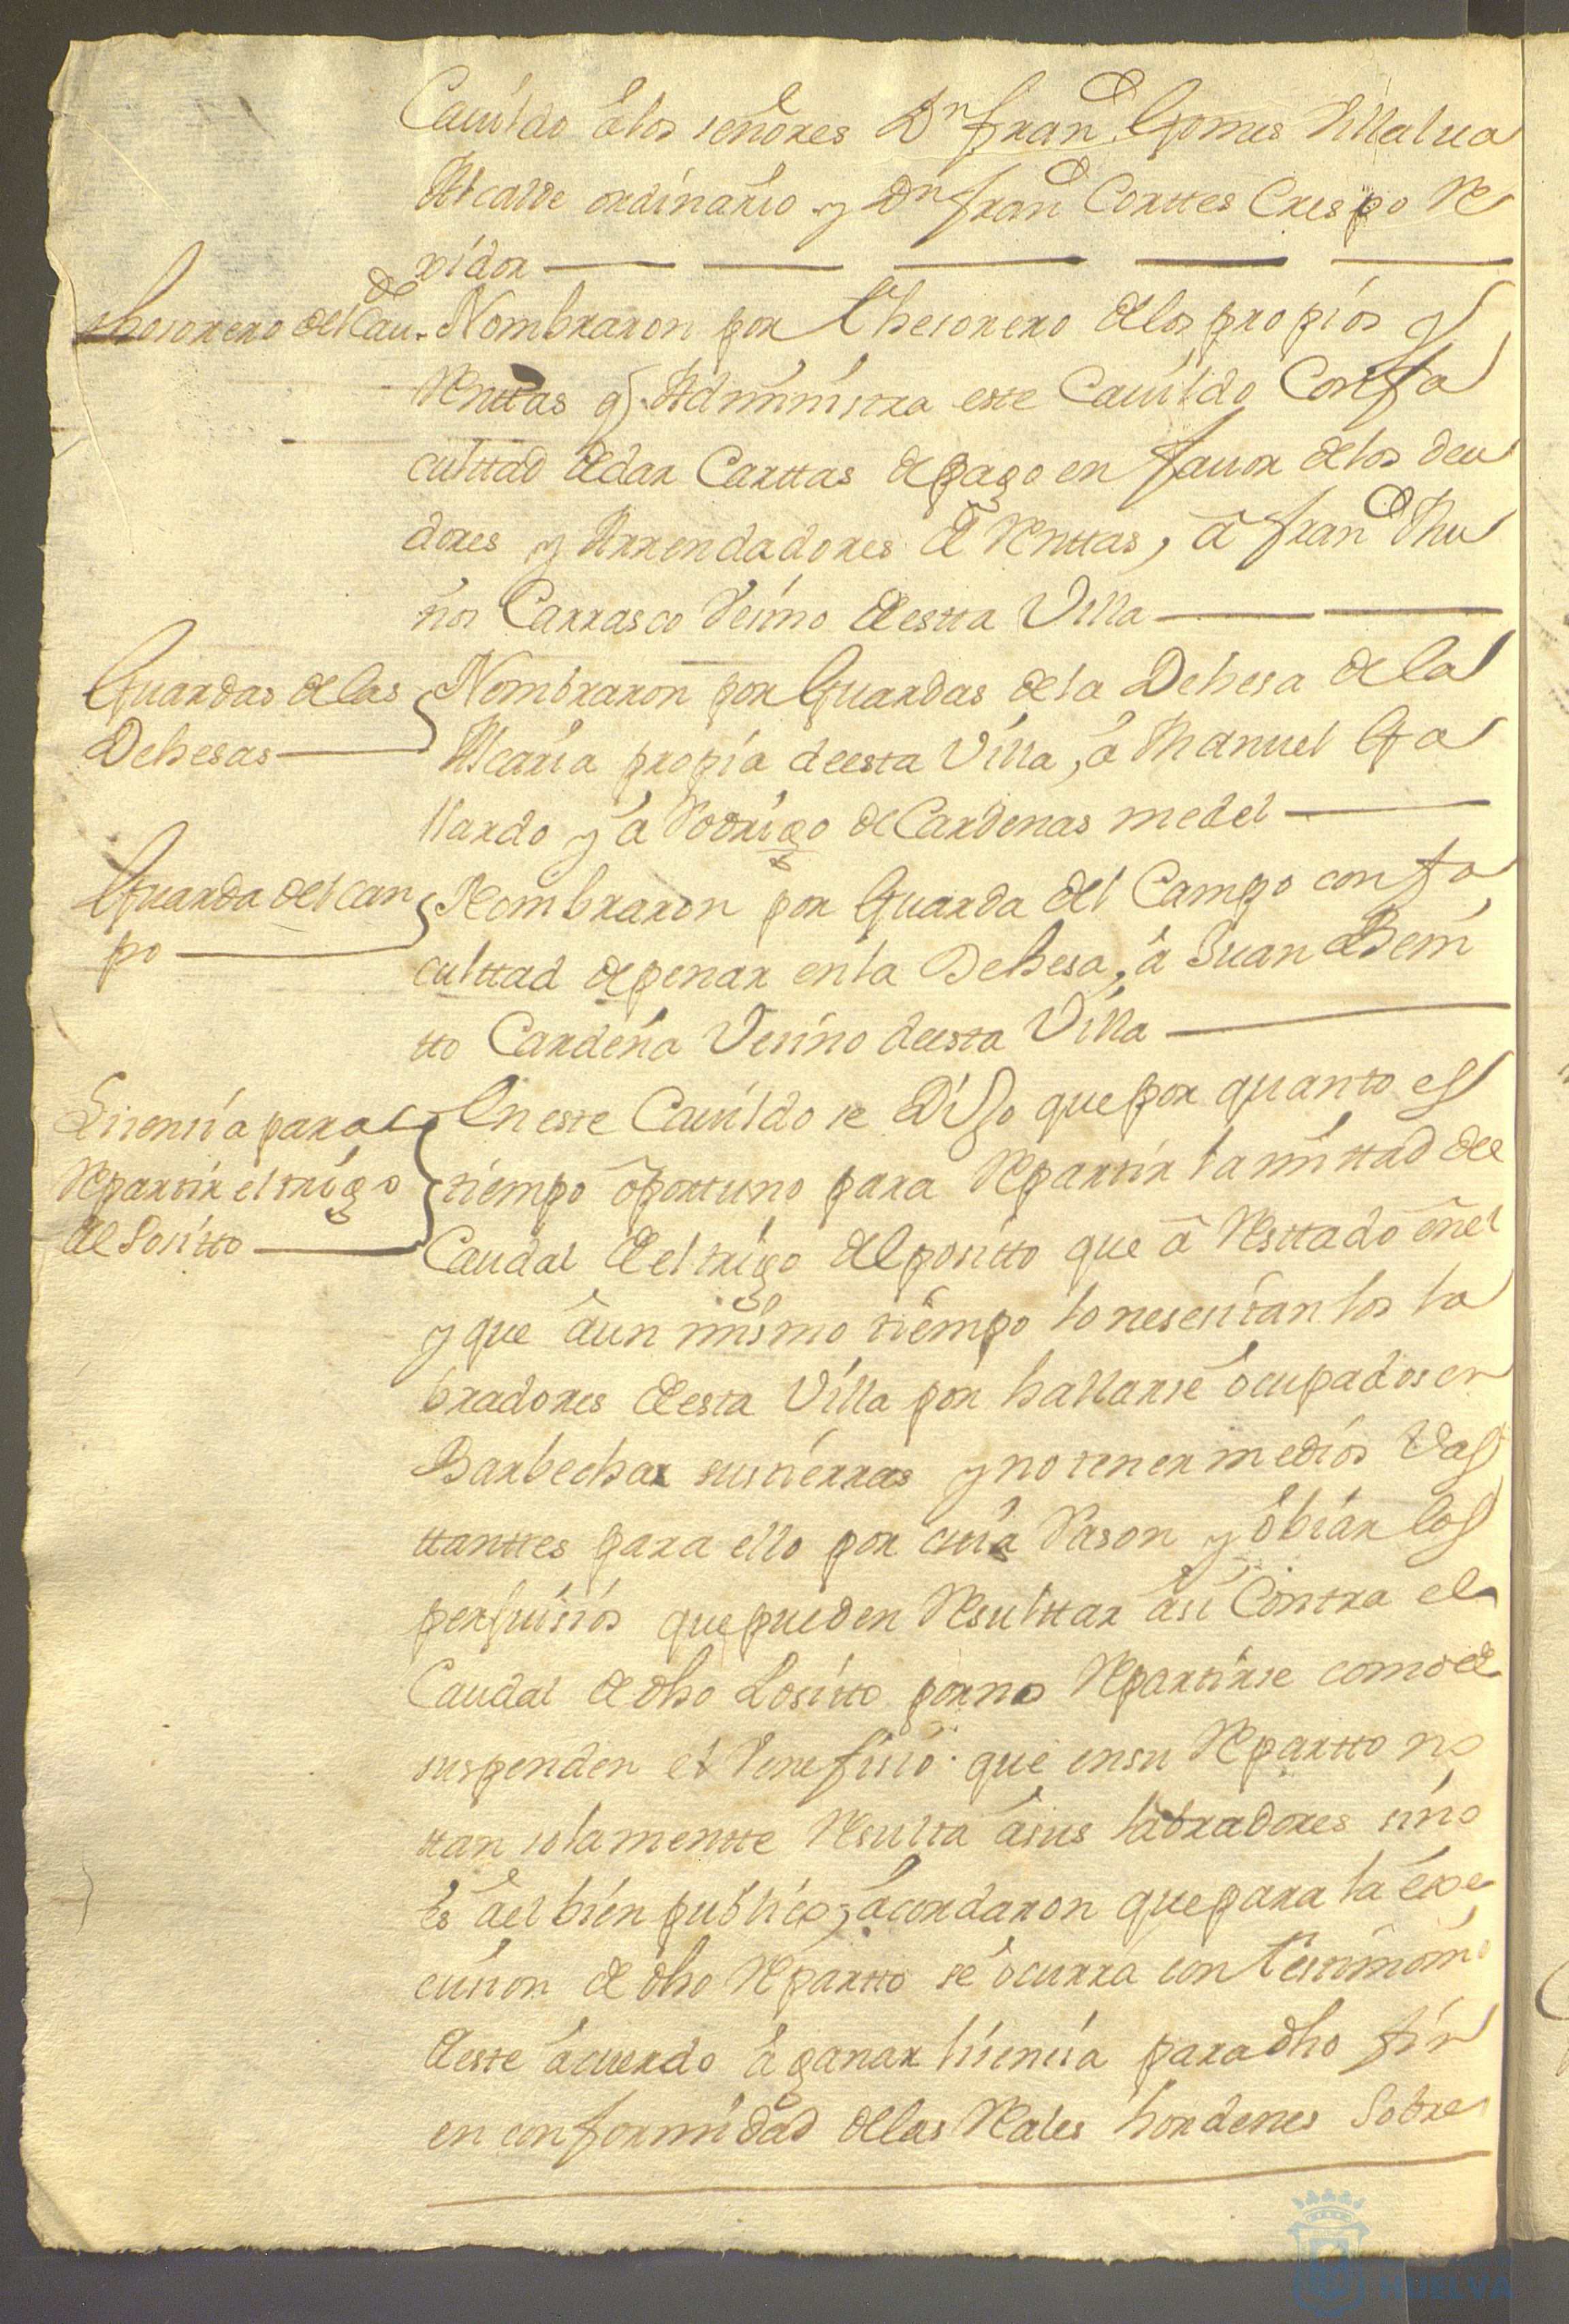 Cauildo â los señores Dn. Franco. Gomes Villalua
Alcalde ordinario y Dn. Franco. Corttes Crespo Re
xidor
Thesorero del Caudo.
Nombraron por thesorero de los propios y
Renttas q Administra este Cauildo Con fa
culttad de dar Carttas de pago en fauor de los deu
dores y Arrendadores de Renttas, â Franco. Mu
ños Carrasco Vesino de estta Villa
Guardas de las
Dehesas
Nombraron por Guardas de la Dehesa de la
Alcaria propia de esta Villa, â Manuel Ga
llardo y â Rodrigo de Cardenas medel
Guarda del can
po
Nombraron por Guarda del Campo con fa
culttad de penar en la Dehesa, â Juan Beni
tto Cardeña Vesino de esta Villa
Lisensia para
Repartir el trigo
del Positto
En este Cauildo se Dijo que por quanto es
tiempo oportuno para Repartir la mittad del
Caudal de el trigo del positto que â Resttado en el
y que â un mismo tiempo lo nesesitan los la
bradores de esta Villa por hallarse ocupados en
Barbechar sus tierras y no tener medios Vas
ttanttes para ello por cuia Rason y obiar los
perjuisios que pueden Resulttar asi Contra el
Caudal de dho Positto por no Repartirse como el
suspender el Venefisio que en su Repartto no
ttan solamentte Resulta â sus labradores sino
es â el bien publico, acordaron que para la exe
cusion de dho Repartto se ocurra con testimoni
de este acuerdo â ganar lisensia para dho fin
en conformidad de las Reales hordenes Sobre
HUELVA